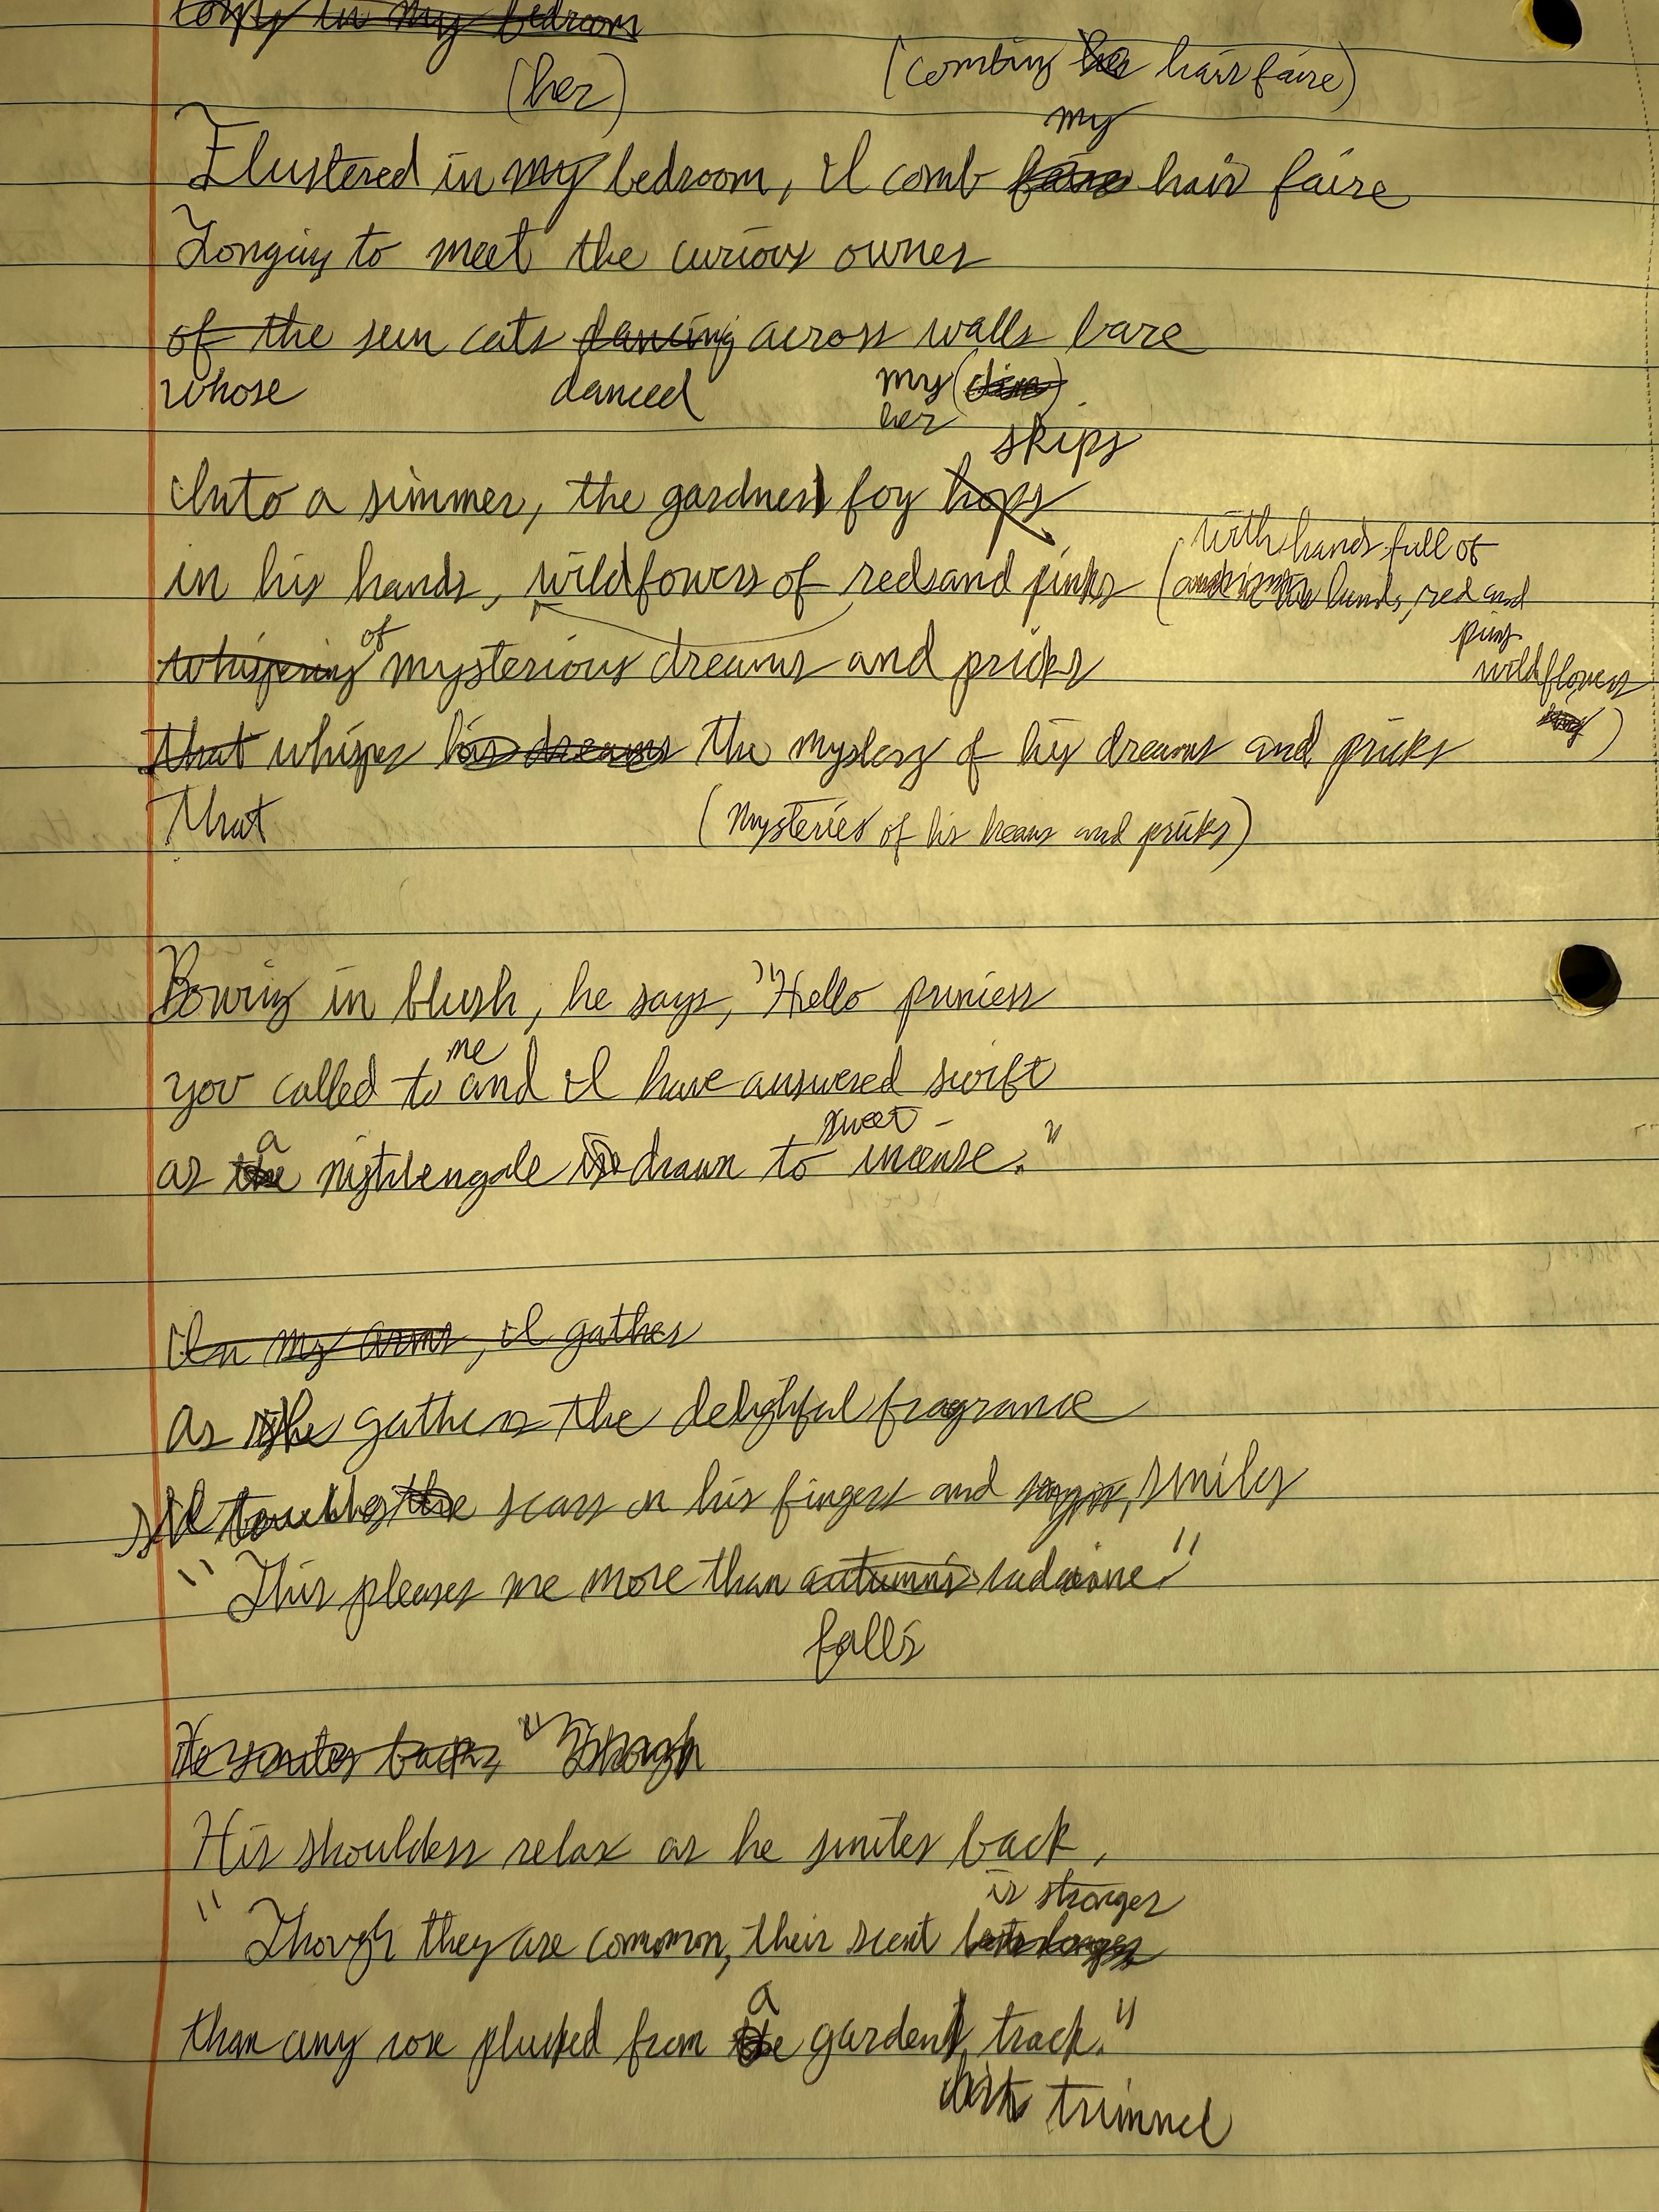 in my bedroom
(her) (combing her hair faire)
my
Flustered in my bedroom, I comb hair faire
Longing to meet the curious owner
of the sun cats dancing across walls bare
whose danced my (dim)
her
skips
Into a simmer, the gardner foy hops
with hands full of
in his hands, wildfowers of reds and pinks ( hands, red and
pink
of
whispering mysterious dreams and pricks
wildflowers
that whisper his dreams the mystery of his dreams and pricks )
That (mysteries of his dreams and pricks)
Bowing in blush, he says, "Hello princess
me
you called to and I have answered swift
sweet -
a
as the nightengale is drawn to incense."
In my arms, I gather
as she gathers the delighful fragrance
touches the scars on his fingers and says, smiles
"This pleases me more than autumn's radaine."
falls
He smiles back, "Though
His shoulders relax as he smiles back,
is stronger
"Though they are common, their scent lasts longer
a
than any rose plucked from the garden track."
trimmed